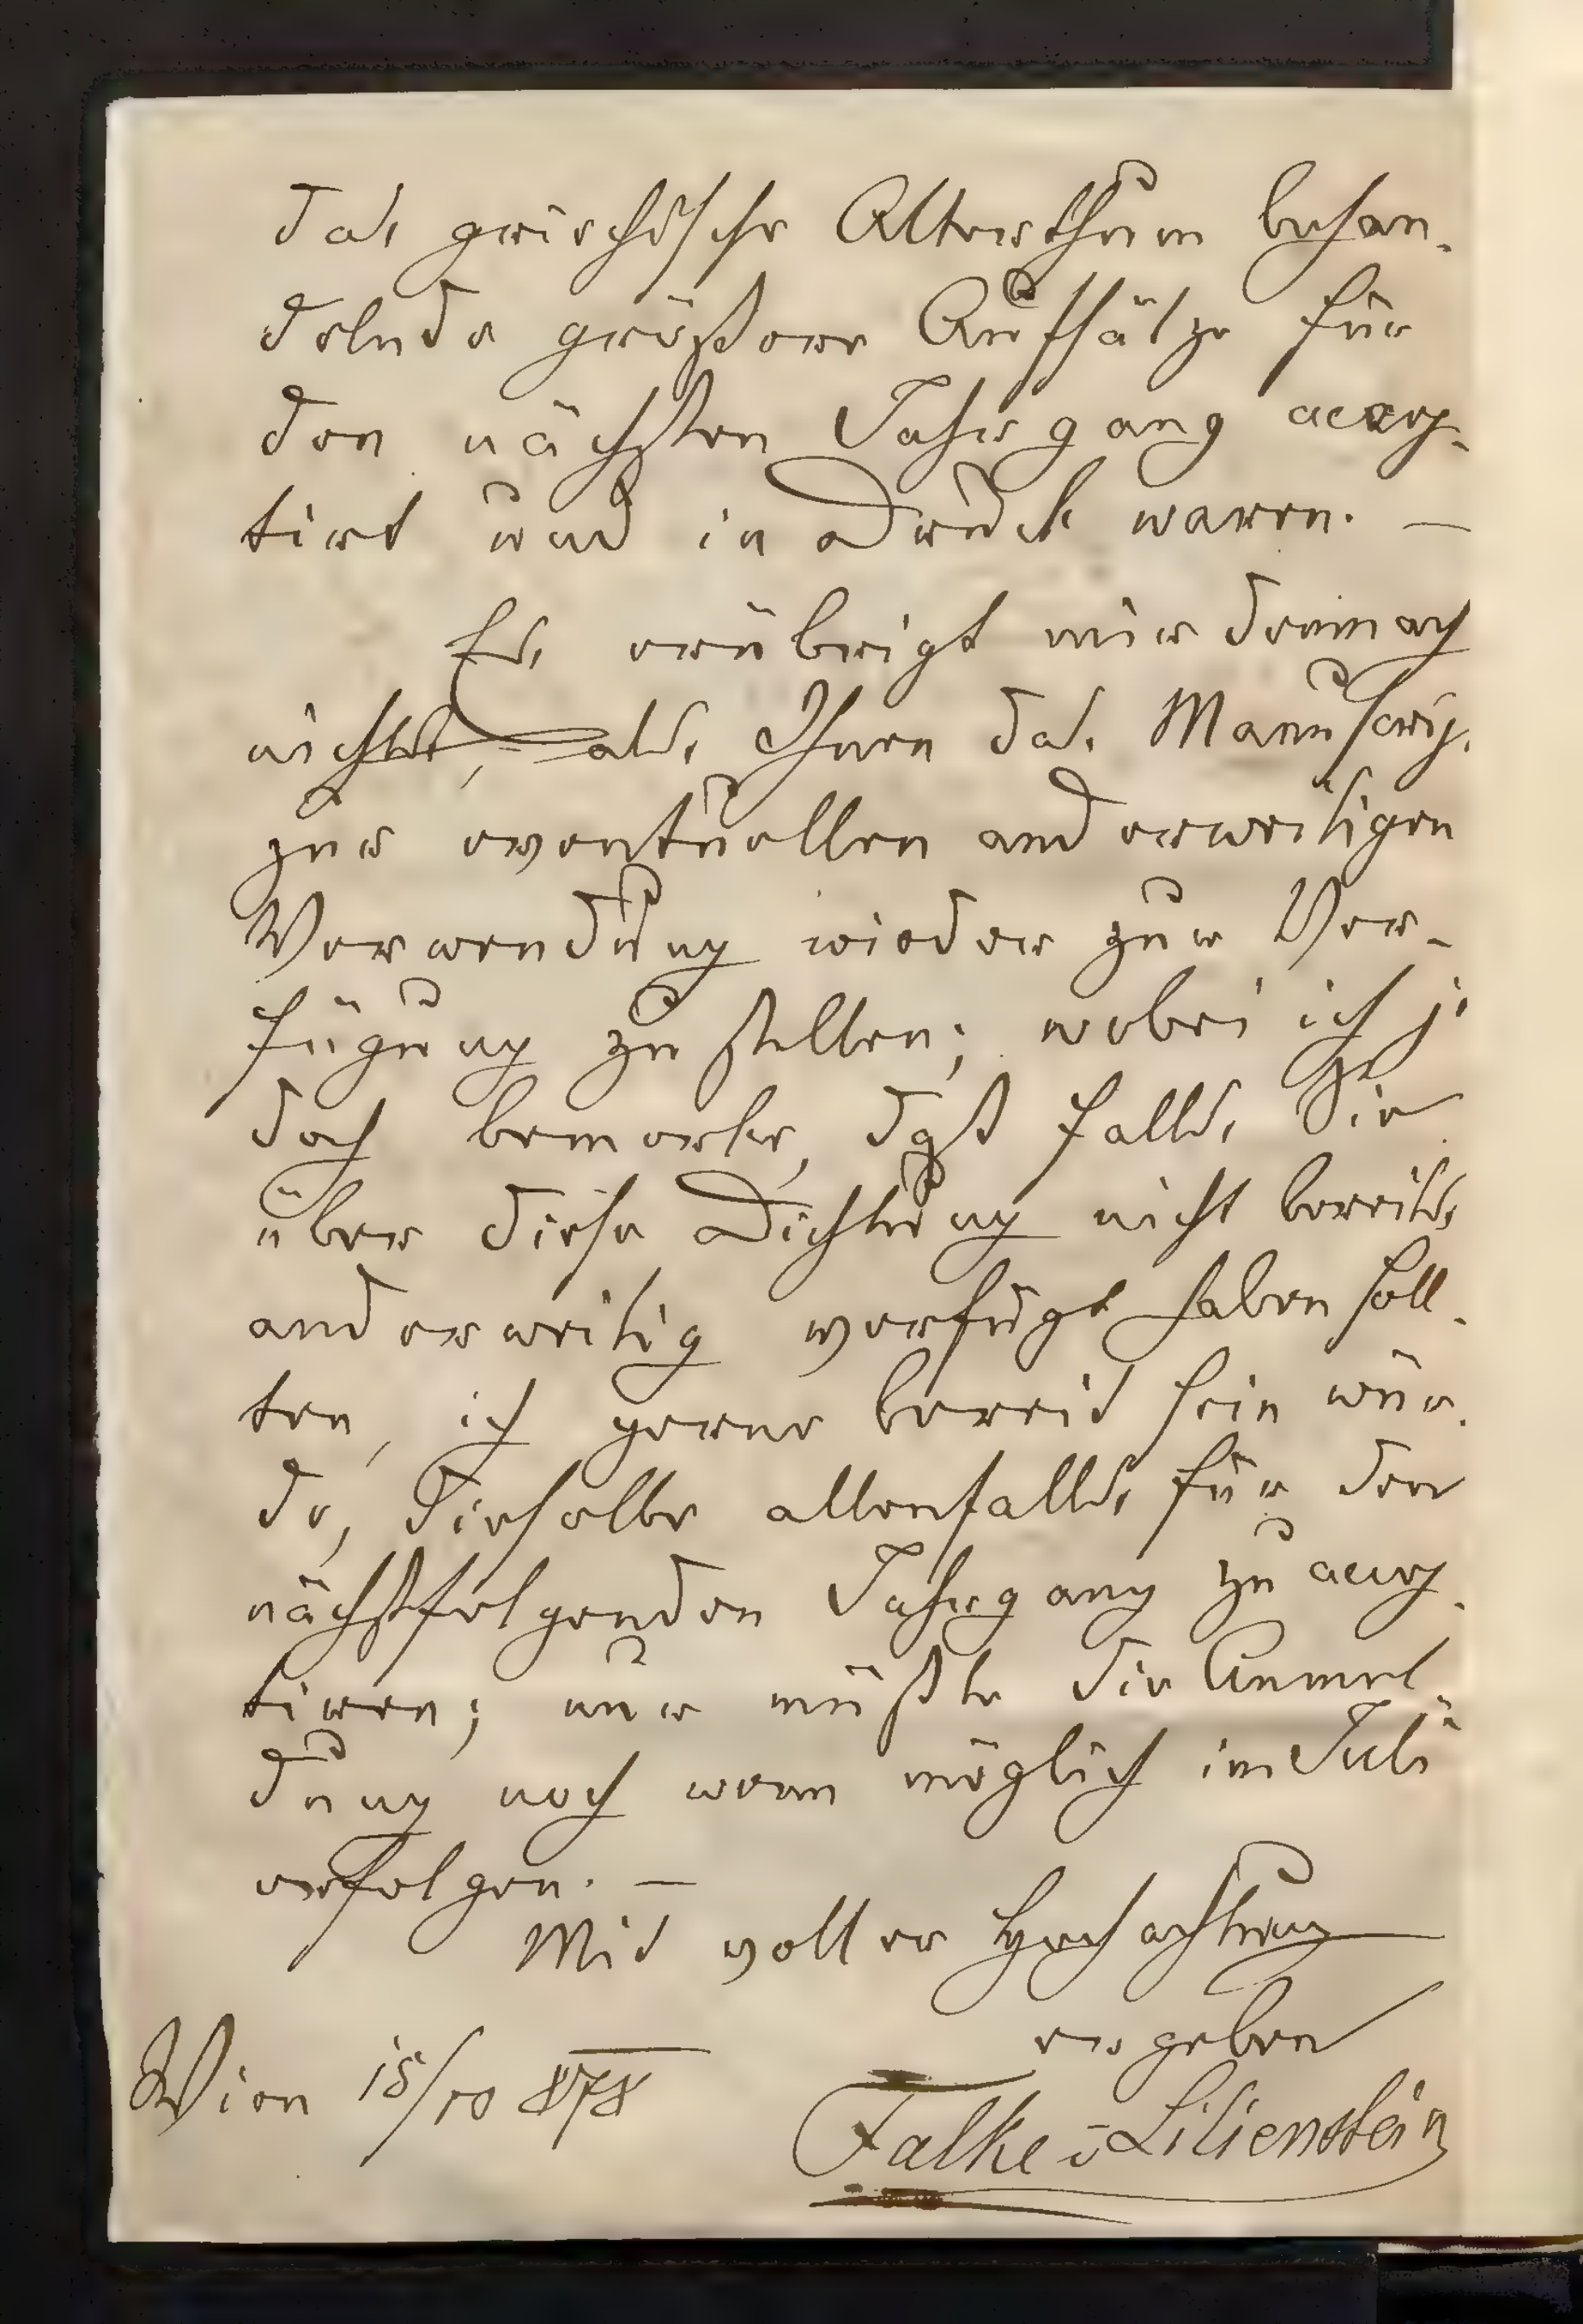 das griechische Alterthum behan-
delnde größere Aufsätze für
den nächsten Jahrgang accep-
tirt und in Druck waren. —
Es erübrigt mir demnach
nichts, als Ihnen das Manuscrip.
zur eventuellen anderweitigen
Verwendung wieder zur Ver-
fügung zu stellen; wobei ich je
doch bemerke, daß falls Sie
über diese Dichtung nicht bereits
anderweitig verfügt haben soll-
ten, ich gerne bereit sein wür-
de, dieselbe allenfalls für den
nächstfolgenden Jahrgang zu accep-
tiren; nur müßte die Anmel-
dung noch wenn möglich im Juli
erfolgen. —
Mit voller Hochachtung
ergeben
Wien 15/10 878
Falke v Lilienstein